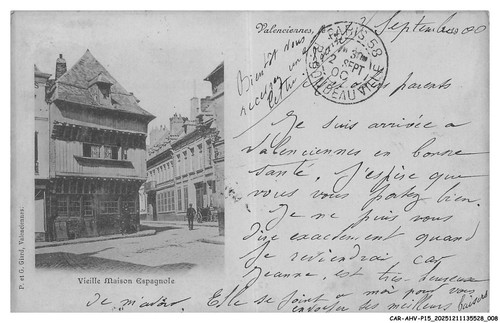 Valenciennes, 2 Septembre 00
PARIS 58
2 SEPT
00
R. DOMBEAUVILLE
Bientôt vous
recevrez une
lettre
et
parents
Je suis arrivée a
Valenciennes en bonne
santé. J'espère que
vous vous portez bien.
Je ne puis vous
dire exactement quand
je reviendrai car
Jeanne, est très heureuse
de m'avoir. Elle se joint a moi pour vous
envoyer des meilleurs baisers
P. et G. Giard, Valenciennes.
Vieille Maison Espagnole
CAR-AHV-P15_20251211135528_008